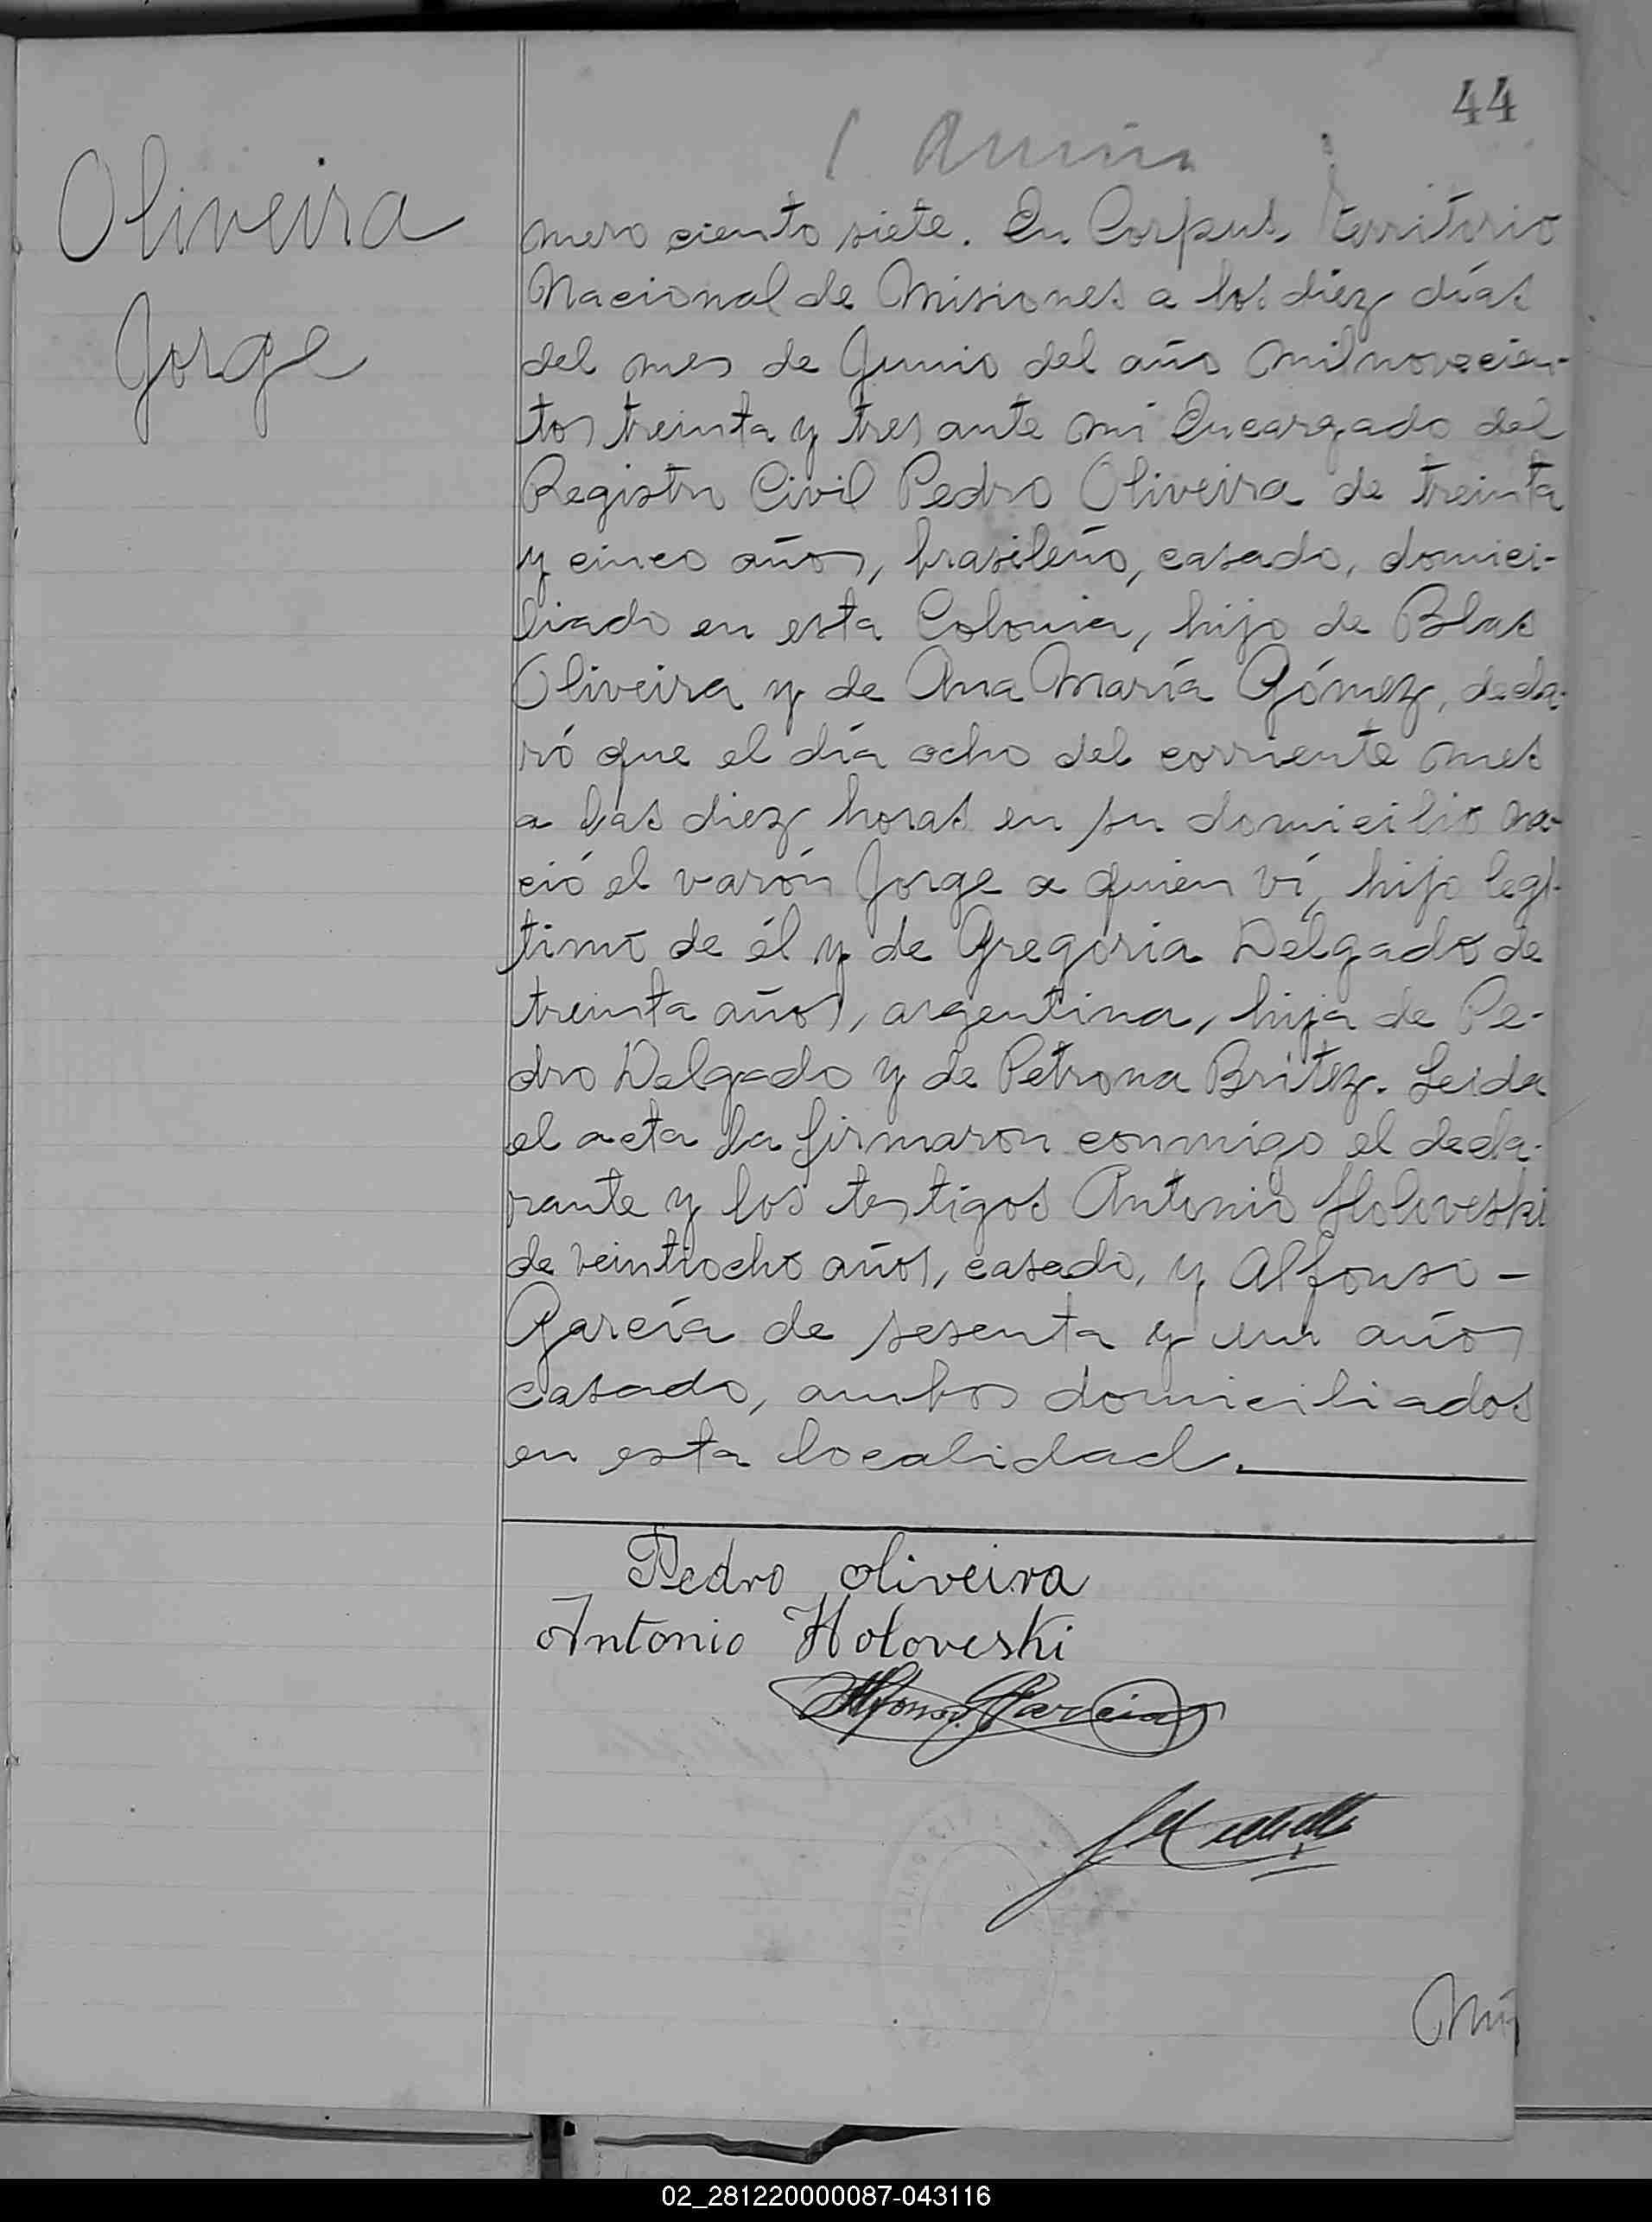 44
Oliveira
Jorge
mero ciento siete. En Corpus, territorio
Nacional de Misiones a los diez días
del mes de Junio del año mil novecien-
tos treinta y tres ante mi Encargado del
Registro Civil Pedro Oliveira de treinta
y cinco años, brasileño, casado, domici-
liado en esta Colonia, hijo de Blas
Oliveira y de Ana María Gómez, decla-
ró que el día ocho del corriente mes
a las diez horas en su domicilio na-
ció el varón Jorge a quien ví, hijo legí-
timo de él y de Gregoria Delgado de
treinta años, argentina, hija de Pe-
dro Delgado y de Petrona Britez. Leida
el acta la firmaron conmigo el decla-
rante y los testigos Antonio Holoveski
de veintiocho años, casado, y Alfonso -
García de sesenta y un años
casado, ambos domiciliados
en esta localidad.
Pedro oliveira
Antonio Holoveski
Alfonso Garcia
02_281220000087-043116